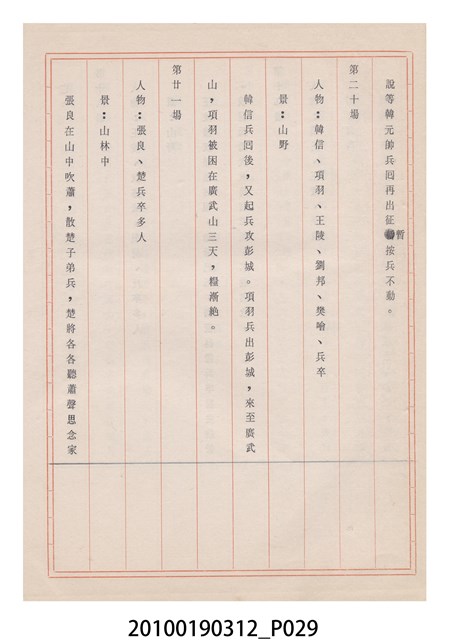 說等韓元帥兵囘再出征暫按兵不動。
第二十場
人物：韓信、項羽、王陵、劉邦、樊噲、兵卒
景：山野
韓信兵囘後，又起兵攻彭城。項羽兵出彭城，來至廣武
山，項羽被困在廣武山三天，糧漸絶。
第廿一場
人物：張良、楚兵卒多人
景：山林中
張良在山中吹蕭，散楚子弟兵，楚將各各聽蕭聲思念家
20100190312_P029